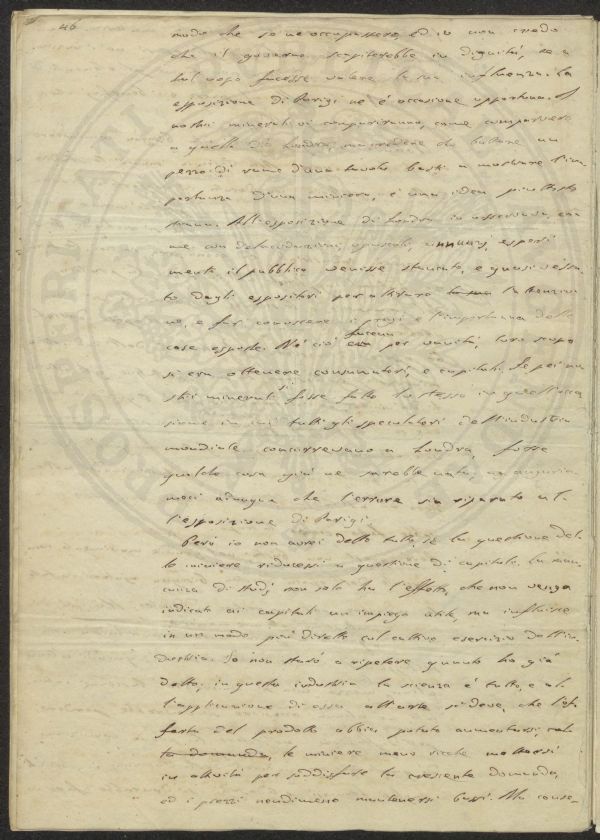 46
modo che se ne occupassero, ed io non credo
che il governo scapiterebbe in dignità, se a
tal uopo facesse valere la sua influenza. La
esposizione di Parigi ne è occasione opportuna. I
nostri minerali vi compariranno, come comparvero
a quella di Londra, ma credere che buttare un
pezzo di rame d'una tavola basti a mostrare l'im-
portanza d'una miniera, è una idea piuttosto
strana. All'esposizione di Londra io osservava, co-
me con delucidazioni, opuscoli, annunzj, espressi
mente il pubblico venisse stancato, e quasi vessa-
to dagli espositori per attirare la sua l'attenzio-
ne, e far conoscere i pregi e l'importanza delle
cose esposte. Nè ciò era facevan per vanità, loro scopo
si era ottenere consumatori, e capitali. Se pei no-
stri minerali si fosse fatto lo stesso in quell'occa
sione in cui tutti gli speculatori dell'industria
mondiale concorrevano a Londra, forse
qualche cosa già ne sarebbe nata, ma auguria
moci dunque che l'errore sia riparato al-
l'esposizione di Parigi.
Però io non avrei detto tutto, se la questione del-
le miniere riducessi a questione di capitali. La man-
canza di studj non solo ha l'effetto, che non venga
indicato ai capitali un impiego utile, ma influisce
in un modo più diretto sul cattivo esercizio dell'in-
dustria. Io non starò a ripetere quanto ho già
detto; in questa industria la scienza è tutto, e al
l'applicazione di essa all'arte si deve, che l'of-
ferta del prodotto abbia potuto aumentarsi,
la domanda, le miniere meno ricche mettersi
in attività per soddisfare la crescente domanda,
ed i prezzi nondimeno mantenersi bassi. Ma conse-
PROSPERITATI